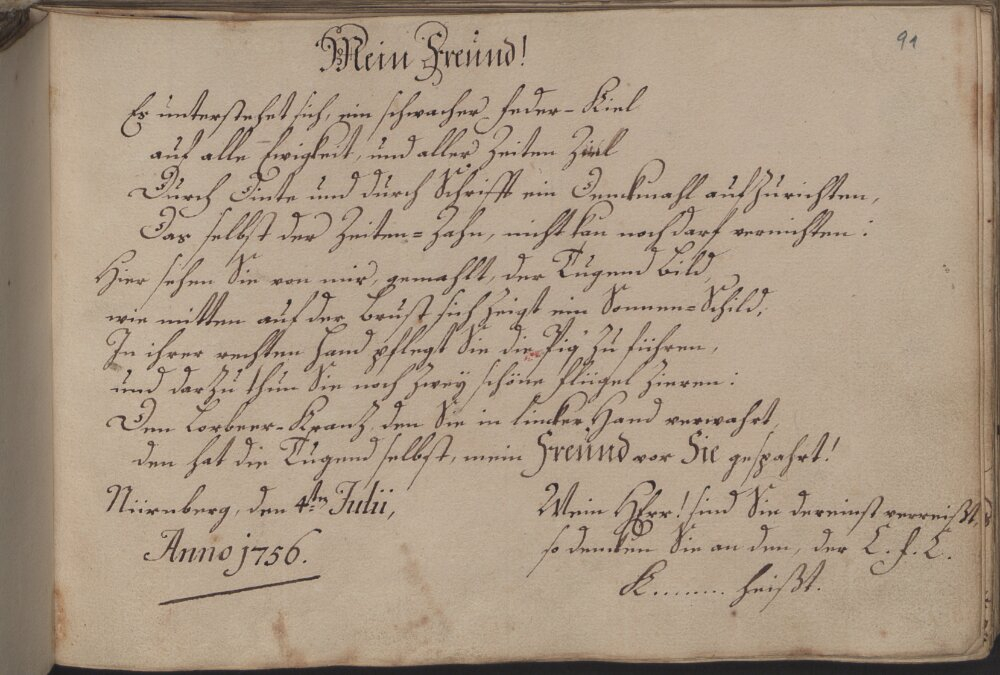 91
Mein Freünd!
Es unterstehet sich, ein schwacher feder-Kiel
auf alle Ewigkeit, und aller Zeiten Ziel
Durch Dinte und durch Schrifft ein Denckmahl aufzurichten,
Das selbst der Zeiten-Zahn, nicht kan noch darf vernichten:
Hier sehen Sie von mir, gemahlt, der Tugend bild,
wie mitten auf der Brust sich zeigt ein Sonnen-Schild,
In ihrer rechten Hand pflegt Sie die Piq zu führen,
und darzu thun Sie noch zwey schöne flügel zieren:
Den Lorbeer-Krantz, den Sie in lincker Hand verwahrt,
den hat die Tugend selbst, mein Freünd vor Sie gespahrt!
Nürnberg, den 4ten Julii,
Anno 1756.
Mein HErr! sind Sie dereinst verreißt,
so dencken Sie an den, der C. f. C.
K........ heißt.